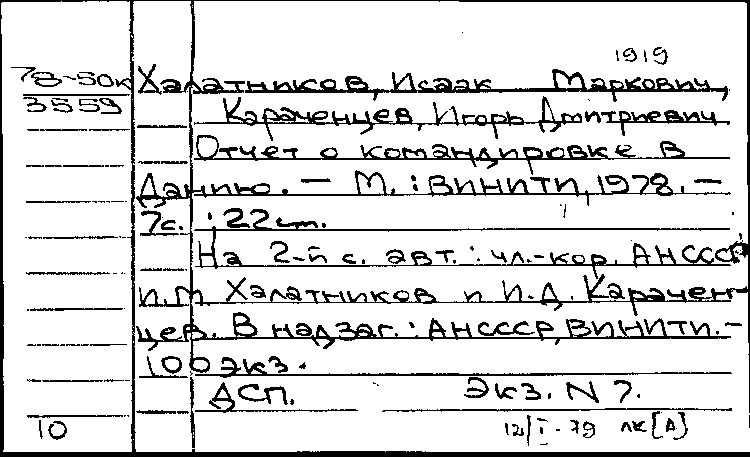 1919
78-50к Халатников, Исаак Маркович,
3559 Караченцев, Игорь Дмитриевич
Отчет о командировке в
Данию. — М. : ВИНИТИ, 1978. —
7с. ; 22 см.
На 2-й с. авт. : чл.-кор. АНСССР
И.М. Халатников и И.Д. Карачен-
цев. В надзаг. : АНСССР, ВИНИТИ. -
100 экз.
ДСП. Экз. N 7.
10 12/I - 79 лк [А]